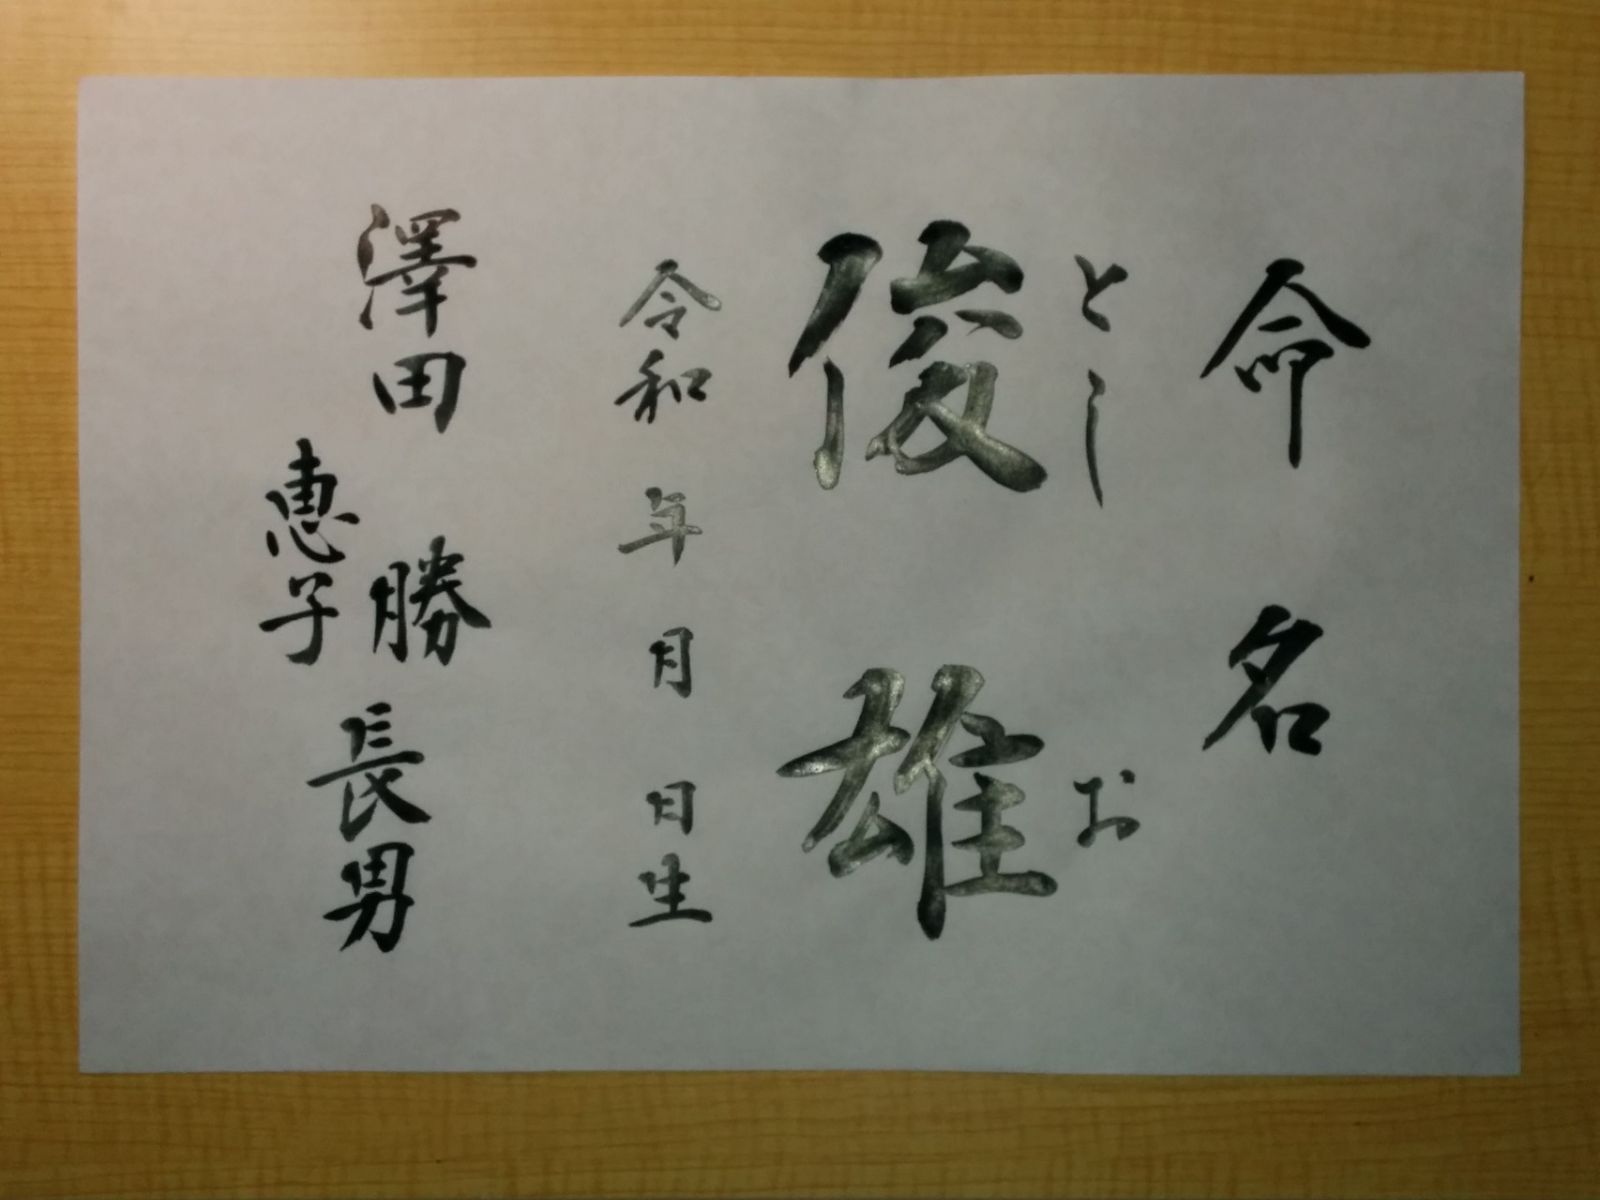 命名
としお
俊雄
令和 年 月 日生
澤田 勝
恵子
長男